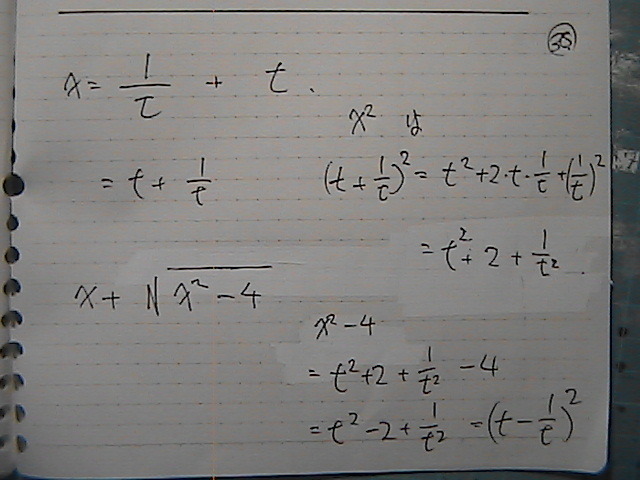 35
x = 1/t + t.
= t + 1/t
x² は
(t + 1/t)² = t² + 2·t·1/t + (1/t)²
= t² + 2 + 1/t²
x + √x² - 4
x² - 4
= t² + 2 + 1/t² - 4
= t² - 2 + 1/t² = (t - 1/t)²